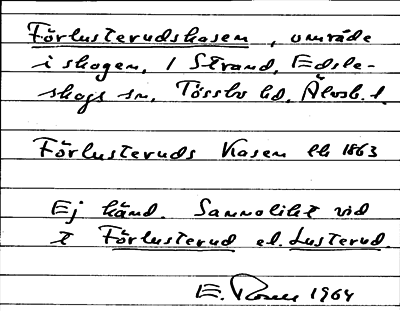 Förlusterudskasen, område
i skogen, / Strand, Edsle-
skogs sn, Tössbo hd, Älvsb. l.
Förlusteruds Kasen lh 1863
Ej känd. Sannolikt vid
t Förlusterud el. Lusterud.
E. 1964